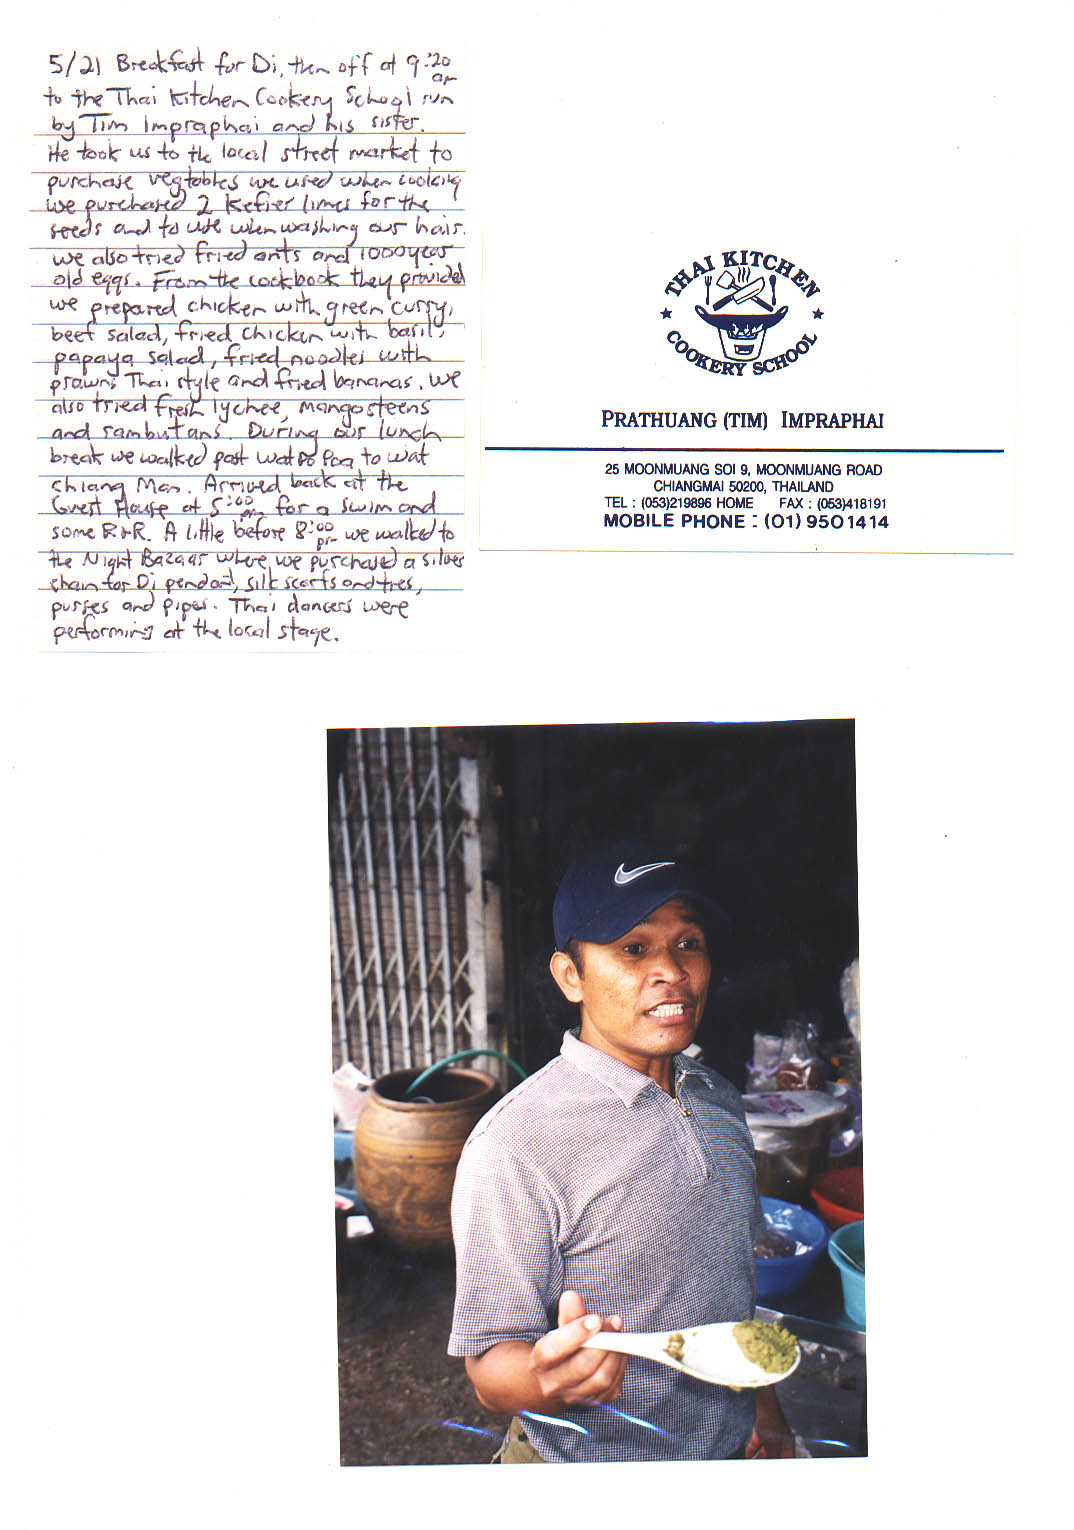 5/21 Breakfast for Di, then off at 9:20 am
to the Thai Kitchen Cookery School run
by Tim Impraphai and his sister.
He took us to the local street market to
purchase vegtables we used when cooking
we purchased 2 Kefier limes for the
seeds and to use when washing our hair.
we also tried fried ants and 1000 year
old eggs. From the cookbook they provided
we prepared chicken with green curry,
beef salad, fried chicken with basil,
papaya salad, fried noodles with
prawns Thai style and fried bananas. We
also tried fresh lychee, mangosteens
and rambutans. During our lunch
break we walked past Wat to Wat
Chiang Man. Arrived back at the
Guest House at 5:00 pm for a swim and
some R+R. A little before 8:00 pm we walked to
the Night Bazaar where we purchased a silver
chain for Di pendant, silk scarfs and ties,
purses and pipes. Thai dancers were
performing at the local stage.
THAI KITCHEN
COOKERY SCHOOL
PRATHUANG (TIM) IMPRAPHAI
25 MOONMUANG SOI 9, MOONMUANG ROAD
CHIANGMAI 50200, THAILAND
TEL : (053)219896 HOME FAX : (053)418191
MOBILE PHONE : (01) 9501414